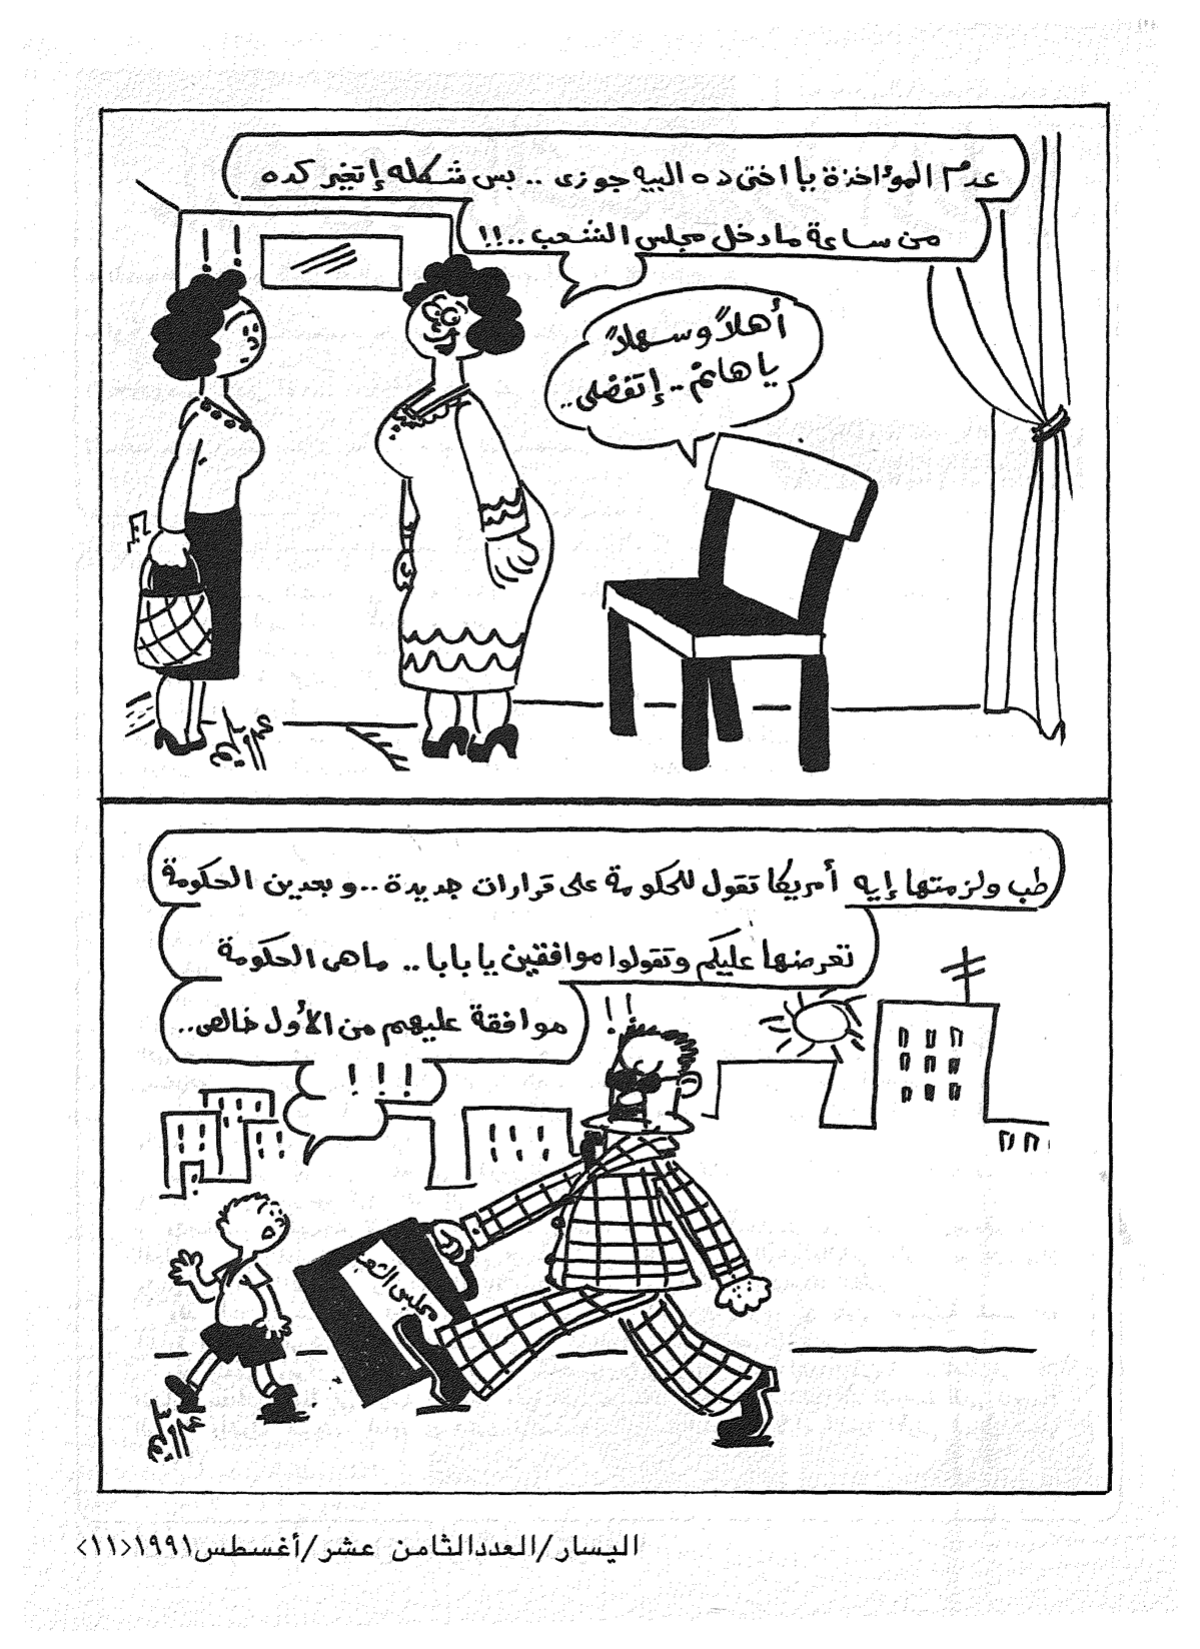 عدم المؤاخذة يا اختى ده البيه جوزى .. بس شكله إتغير كده
من ساعة ما دخل مجلس الشعب ..!!
! !
أهلاً وسهلاً
يا هانم .. إتفضلى ..
طب ولزمتها إيه أمريكا تقول للحكومة على قرارات جديدة .. و بعدين الحكومة
تعرضها عليكم وتقولوا موافقين يا بابا .. ما هى الحكومة
موافقة عليهم من الأول خالص ..
! ! !
! !
مجلس الشعب
اليسار/العددالثامن عشر/أغسطس١٩٩١<١١>